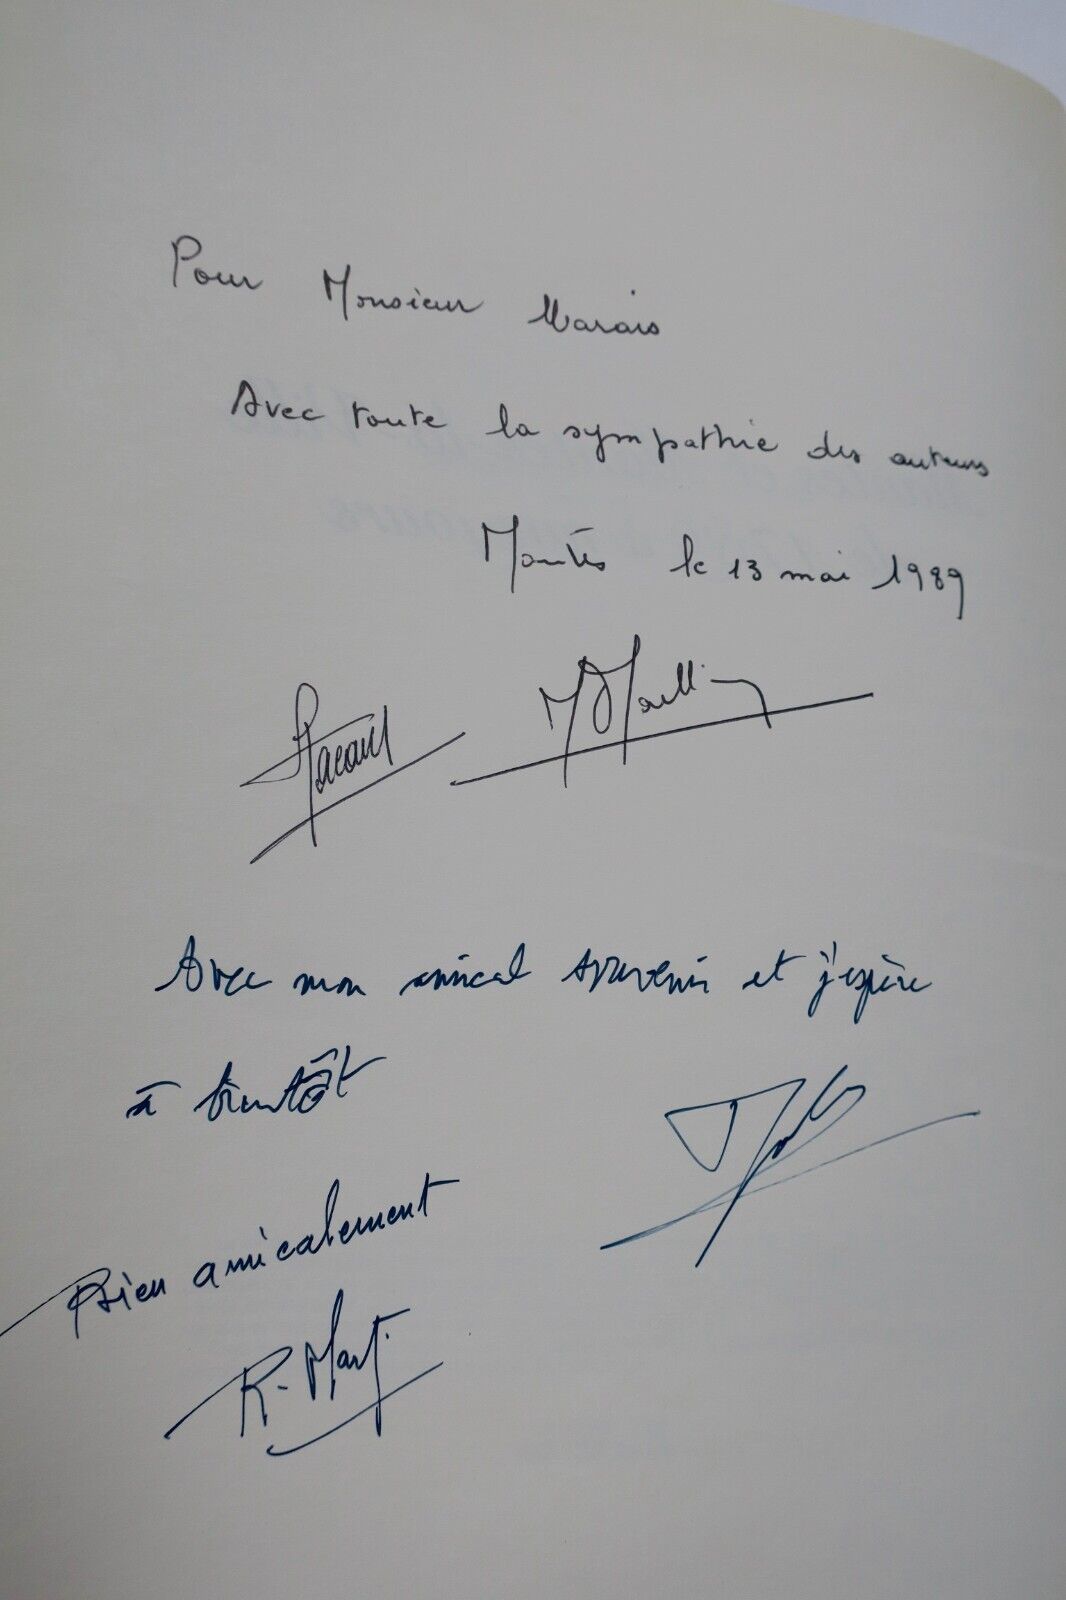 Pour Monsieur Marais
Avec toute la sympathie des auteurs
Mantes le 13 mai 1989
Avec mon amical souvenir et j'espère
à bientôt
Bien amicalement
R. Mart